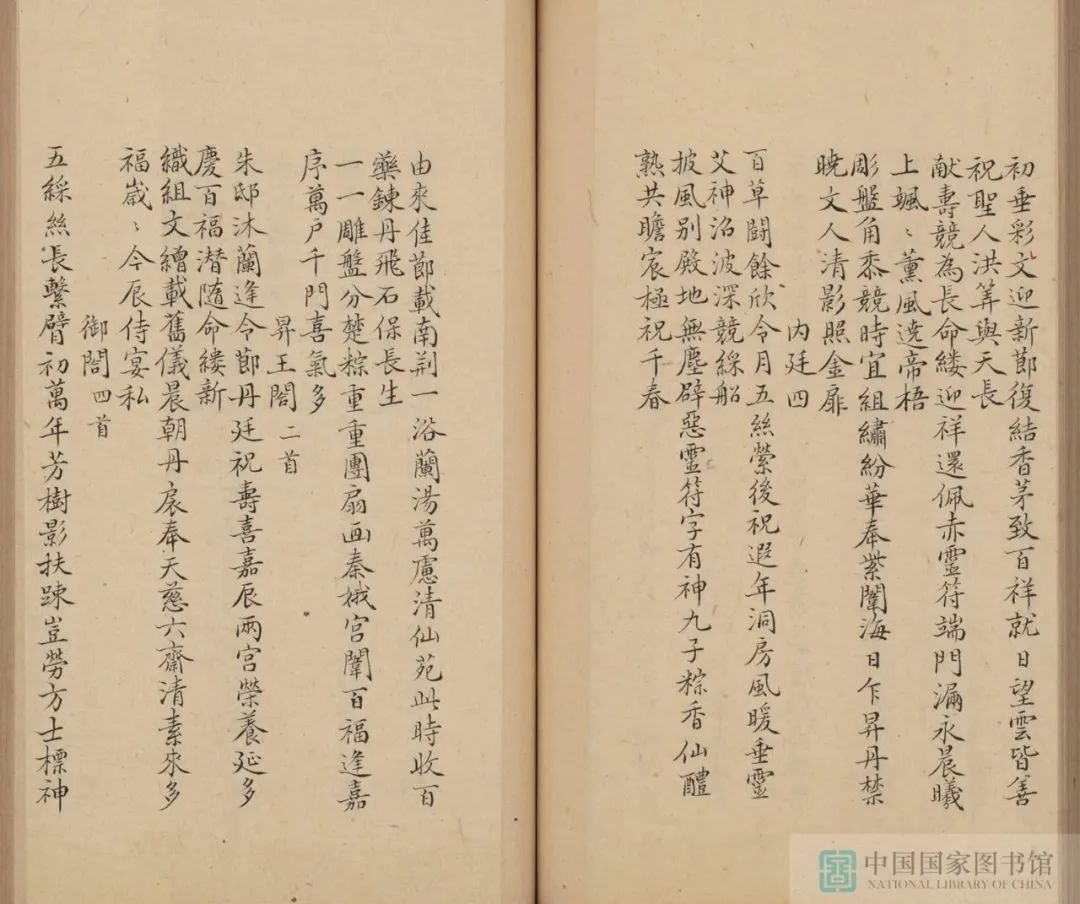 初垂彩文迎新節復結香茅致百祥就日望雲皆善
祝聖人洪筭與天長
献壽競為長命縷迎祥還佩赤靈符端門漏永晨曦
上颯〻薰風遶帝梧
彫盤角黍競時宜組繡紛華奉紫闈海日乍昇丹禁
曉文人清影照金扉
内廷四
百草闘餘欣令月五絲縈後祝遐年洞房風暖垂靈
艾神沼波深競綵船
披風别殿地無塵辟惡靈符字有神九子粽香仙醴
熟共瞻宸極祝千春
由來佳節載南荆一浴蘭湯萬慮清仙苑此時收百
藥鍊丹飛石保長生
一一雕盤分楚粽重重團扇画秦娥宫闈百福逢嘉
序萬户千門喜氣多
昇王閤 二首
朱邸沐蘭逢令節丹廷祝壽喜嘉辰兩宫榮養延多
慶百福潜隨命縷新
織組文繒載舊儀晨朝丹扆奉天慈六齋清素來多
福歲〻今辰侍宴私
御閤 四首
五綵絲長繫臂初萬年芳樹影扶踈豈勞方士標神
中国国家图书馆
NATIONAL LIBRARY OF CHINA